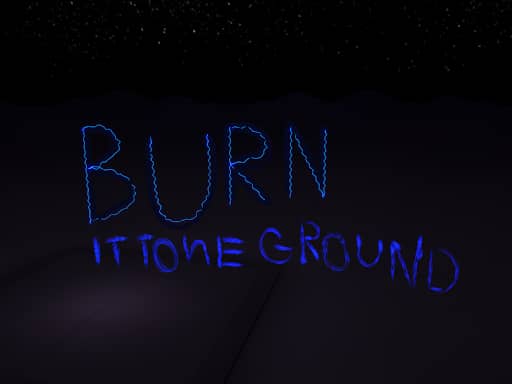 BURN
IT TO hE GROUND